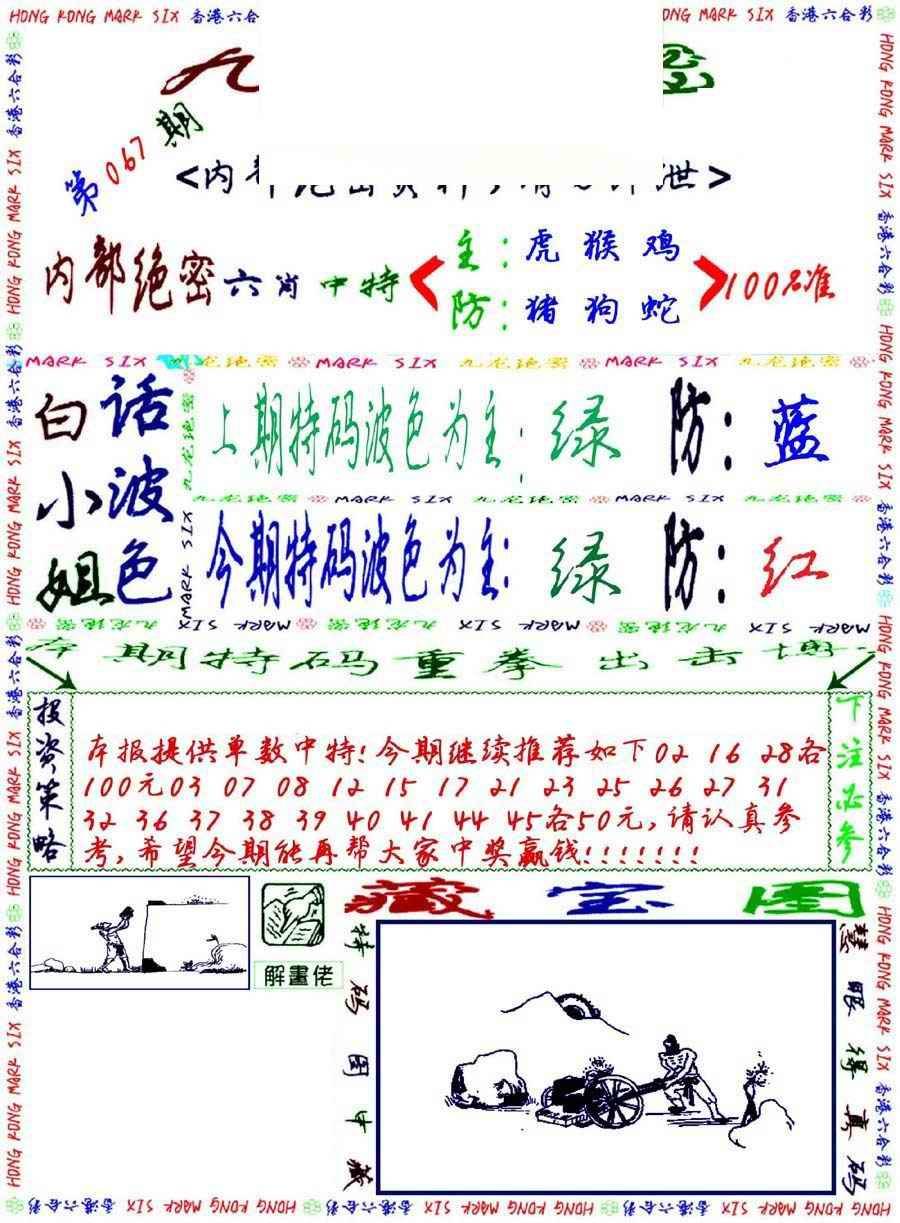 HONG KONG MARK SIX 香港六合彩
ONG KONG MARK SIX 香港六合彩
九
第067期
<内
泄>
内部绝密六肖中特
主:虎猴鸡
防:猪狗蛇
100%准
MARK SIX 九龙绝密 MARK SIX 九龙绝密 MARK SIX 九龙绝密
白话
小波
姐色
上期特码波色为主:绿 防:蓝
九龙绝密 MARK SIX 九龙绝密 MARK SIX 九龙绝密
今期特码波色为主:绿 防:红
MARK SIX 九龙绝密 MARK SIX 九龙绝密 MARK SIX 九龙绝密
本期特码重拳出击
投资策略
本报提供单数中特!今期继续推荐如下02 16 28各
100元03 07 08 12 15 17 21 23 25 26 27 31
32 36 37 38 39 40 41 44 45各50元,请认真参
考,希望今期能再帮大家中奖赢钱!!!!!!!
下注必参
解畫佬
藏宝图
特码图中藏
慧眼得真码
HONG KONG MARK SIX 香港六合彩